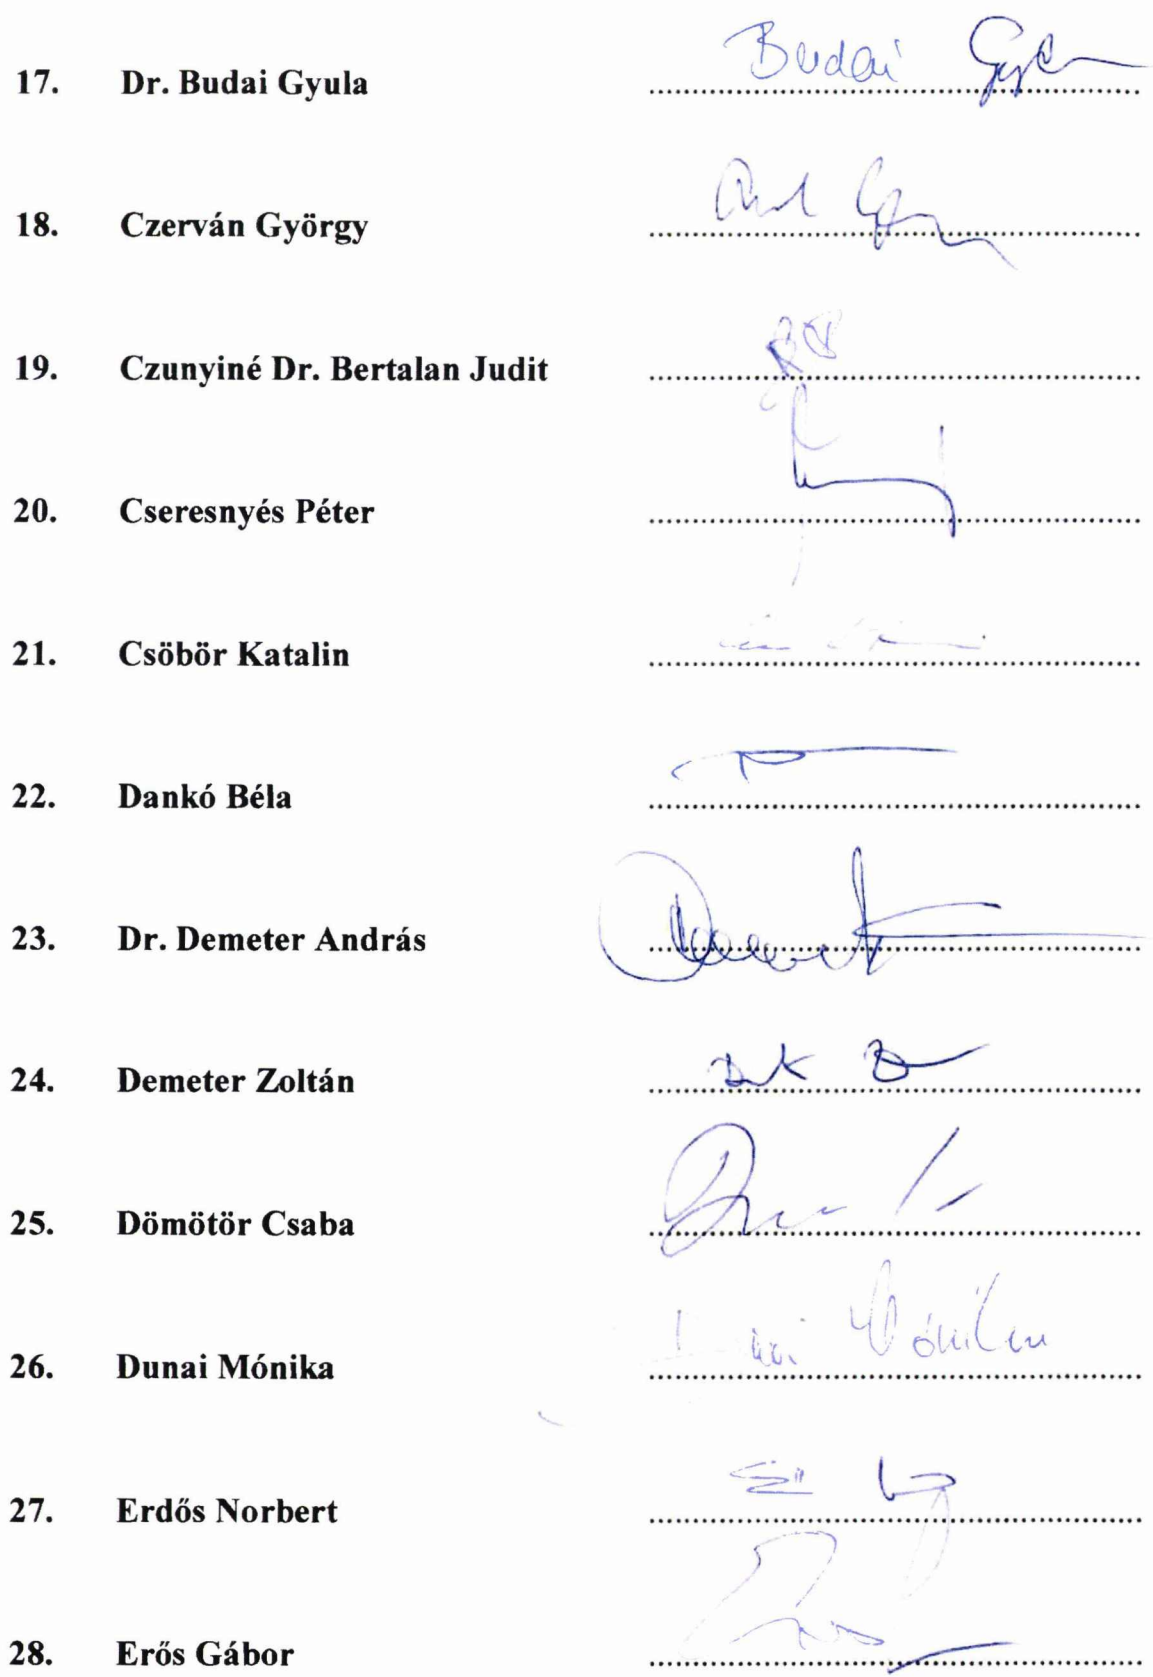 17. Dr. Budai Gyula Budai Gyula
18. Czerván György
19. Czunyiné Dr. Bertalan Judit
20. Cseresnyés Péter
21. Csöbör Katalin
22. Dankó Béla
23. Dr. Demeter András
24. Demeter Zoltán
25. Dömötör Csaba
26. Dunai Mónika Dunai Mónika
27. Erdős Norbert
28. Erős Gábor